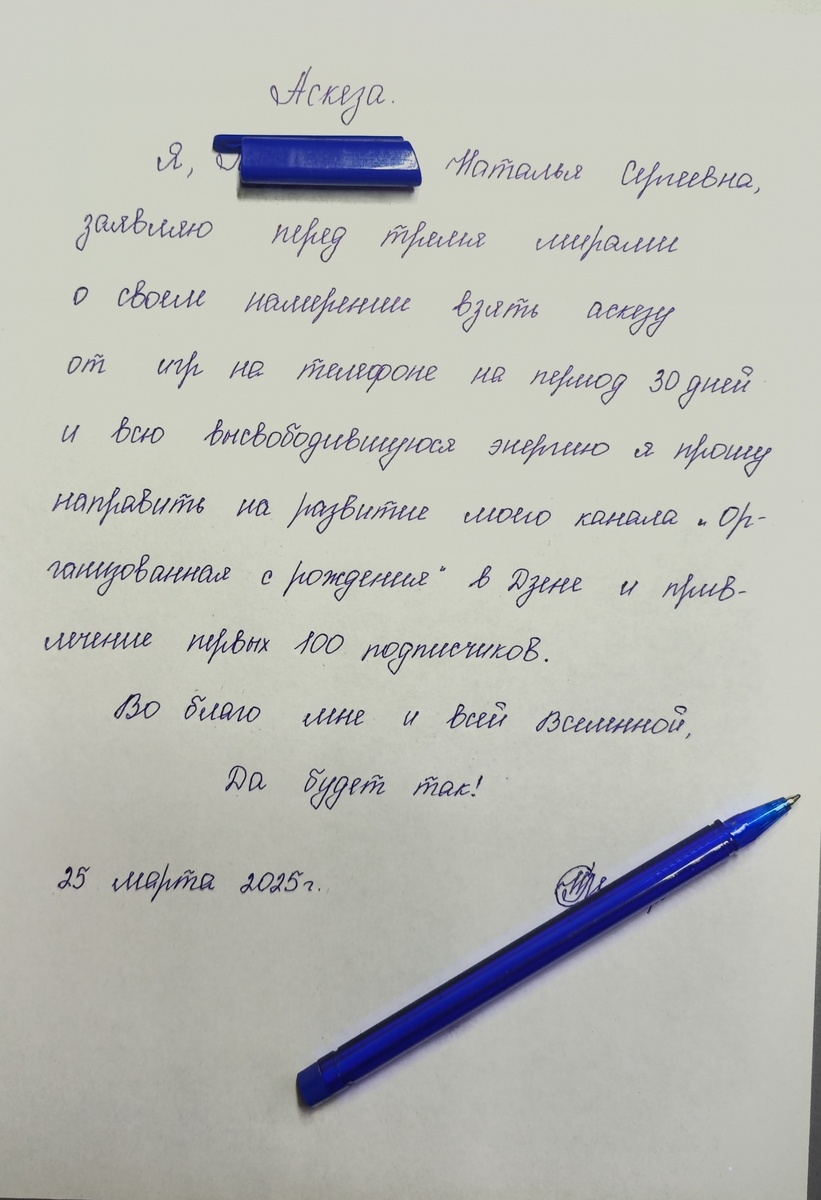 Аскеза.
Я, Наталья Сергеевна,
заявляю перед тремя мирами
о своем намерении взять аскезу
от игр на телефоне на период 30 дней
и всю высвободившуюся энергию я прошу
направить на развитие моего канала "Ор-
ганизованная с рождения" в Дзене и прив-
лечение первых 100 подписчиков.
Во благо мне и всей Вселенной,
Да будет так!
25 марта 2025г.